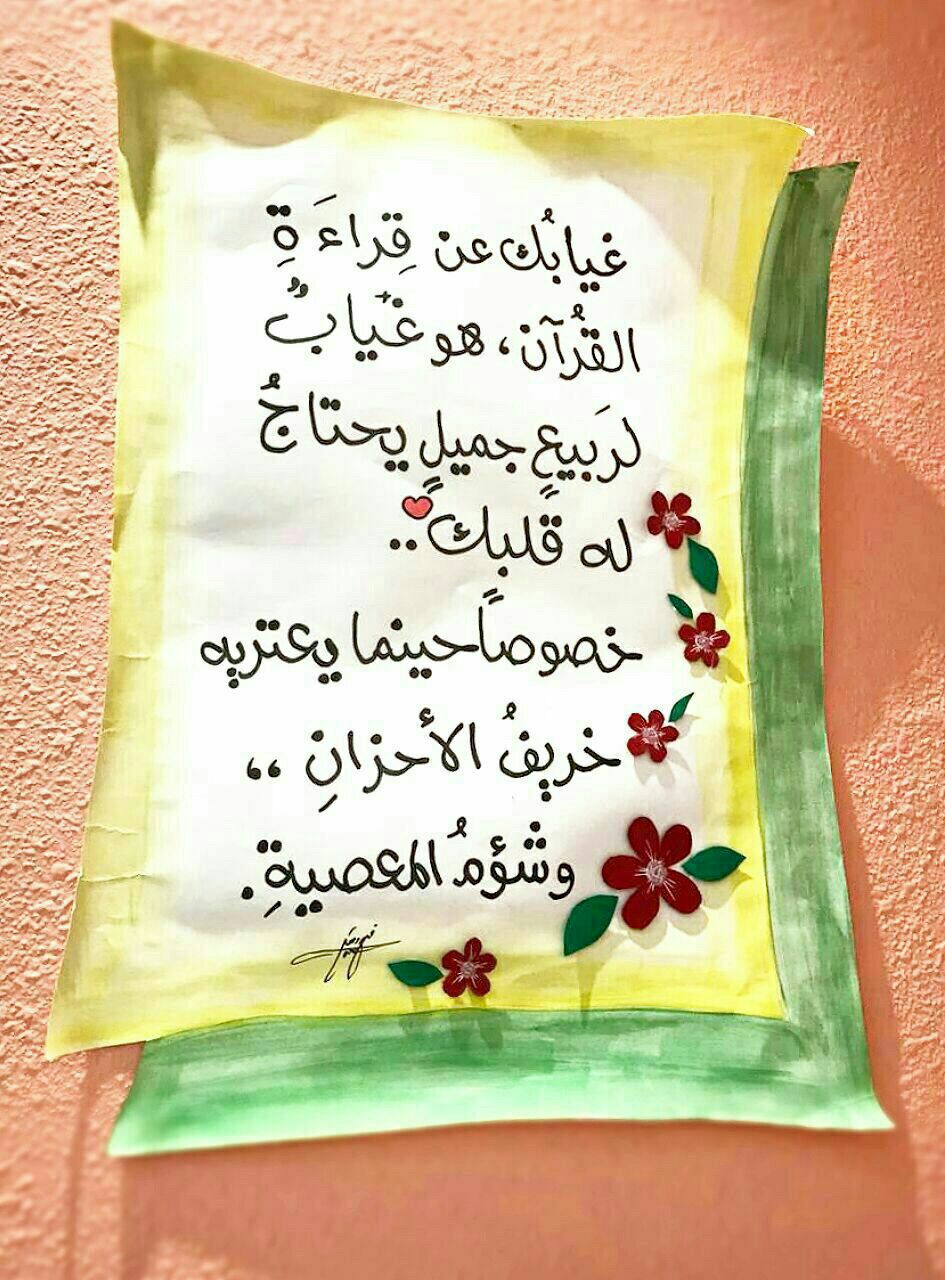 غيابُك عن قِراءَةِ
القُرآن، هو غيَابٌ
لرَبيعٍ جميلٍ يحتاجُ
له قلبك..
خصوصاً حينما يعتريه
خريفُ الأحزانِ ،،
وشؤمُ المعصيةِ.